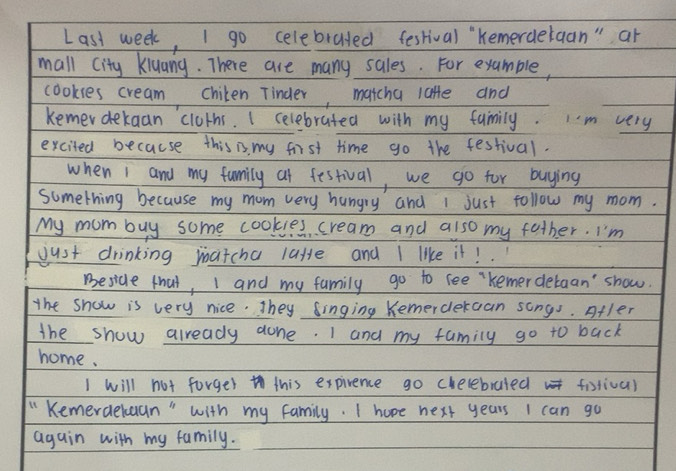 Last week, I go celebrated festival "Kemerdekaan" at
mall City Kluang. There are many sales. For example,
cookies cream, chiken Tinder, matcha latte and
Kemerdekaan cloths. I celebrated with my family. I'm very
excited because this is my first time go the festival.
When I and my family at festival, we go for buying
something because my mom very hungry and I just follow my mom.
My mom buy some cookies cream and also my father. I'm
just drinking matcha latte and I like it!.
Beside that, I and my family go to see "kemerdekaan" show.
the show is very nice. They singing Kemerdekaan songs. After
the show already done. I and my family go to back
home.
I will not forget this expirence go chelebrated fistival
"Kemerdekaan" with my family. I hope next years I can go
again with my family.